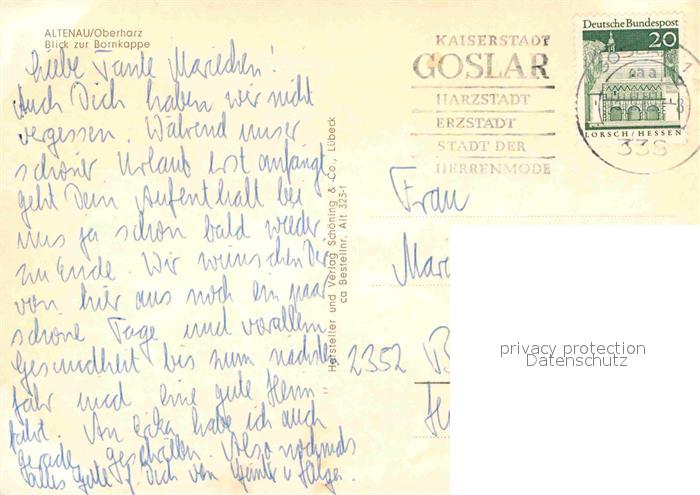 ALTENAU/Oberharz
Blick zur Bornkappe
Liebe Tante Mariechen!
Auch Dich haben wir nicht
vergessen. Während unser
schöner Urlaub erst anfängt
geht Dein Aufenthalt bei
uns ja schon bald wieder
zu Ende. Wir wünschen Dir
von hier aus noch ein paar
schöne Tage und vorallem
Gesundheit bis zum nächsten
Jahr und eine gute Heim
fahrt. An Erika habe ich auch
gerade geschrieben. Also nochmals
alles Gute f. Dich von Günter u. Helga.
Hersteller und Verlag Schöning & Co., Lübeck
ca Bestellnr. Alt 323-f
KAISERSTADT
GOSLAR
HARZSTADT
ERZSTADT
STADT DER
HERRENMODE
Deutsche Bundespost
20
LORSCH/HESSEN
338
Frau
Mari
2352 B
privacy protection
Datenschutz